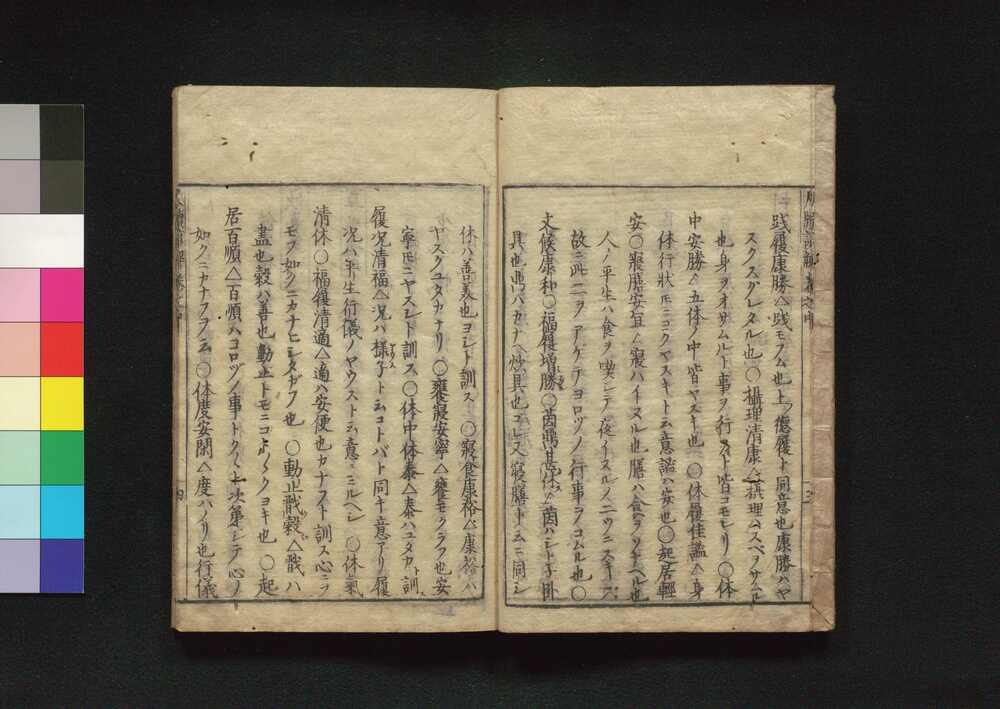 践履康勝△践モフム也上ノ徳履ト同意也康勝ハヤ
スクスグレタル也○攝理清康△攝理ハスベヲサムル
也身ヲオサムルト事ヲ行フト皆コモレリ○体
中安勝△五体ノ中皆ヤスキ也○体履佳謐△身
体行状トモニコクヤスキト云意謐ハ安也○起居輕
安○寢膳安宜△寢ハイヌル也膳ハ食ヲソナヘル也
人ノ平生ハ食ヲ喫シテ夜イヌルノ二ツニスギズ
故ニ此二ヲアゲテヨロヅノ行事ヲコムル也○
文候康和○福履増勝○茵鼎其休△茵ハシトネ卦
具也鼎ハカナヘ炊具也コレ又寢膳ト云ニ同シ
休ハ善美也ヨシト訓ス○寢食康裕△康裕ハ
ヤスクユタカナリ○饔寢安寧△饔モクラフ也安
寧トモニヤスシト訓ス○体中体泰△泰ハユタカト訓
履况清福△况ハ様子ト云コトバト同キ意アリ履
况ハ平生行儀ノヤウスト云意ニミルヘシ○体氣
清休○福履清適△適ハ安便也カナフト訓ス心ニヲ
モフ如クニカナヒシタガフ也○動止戩穀△戩ハ
盡也穀ハ善也動止トモニコトヨクヨキ也○起
居百順△百順ハヨロヅノ事トクト次第シテ心ノ
如クニカナフヲ云○体度安閑△度ハノリ也行儀